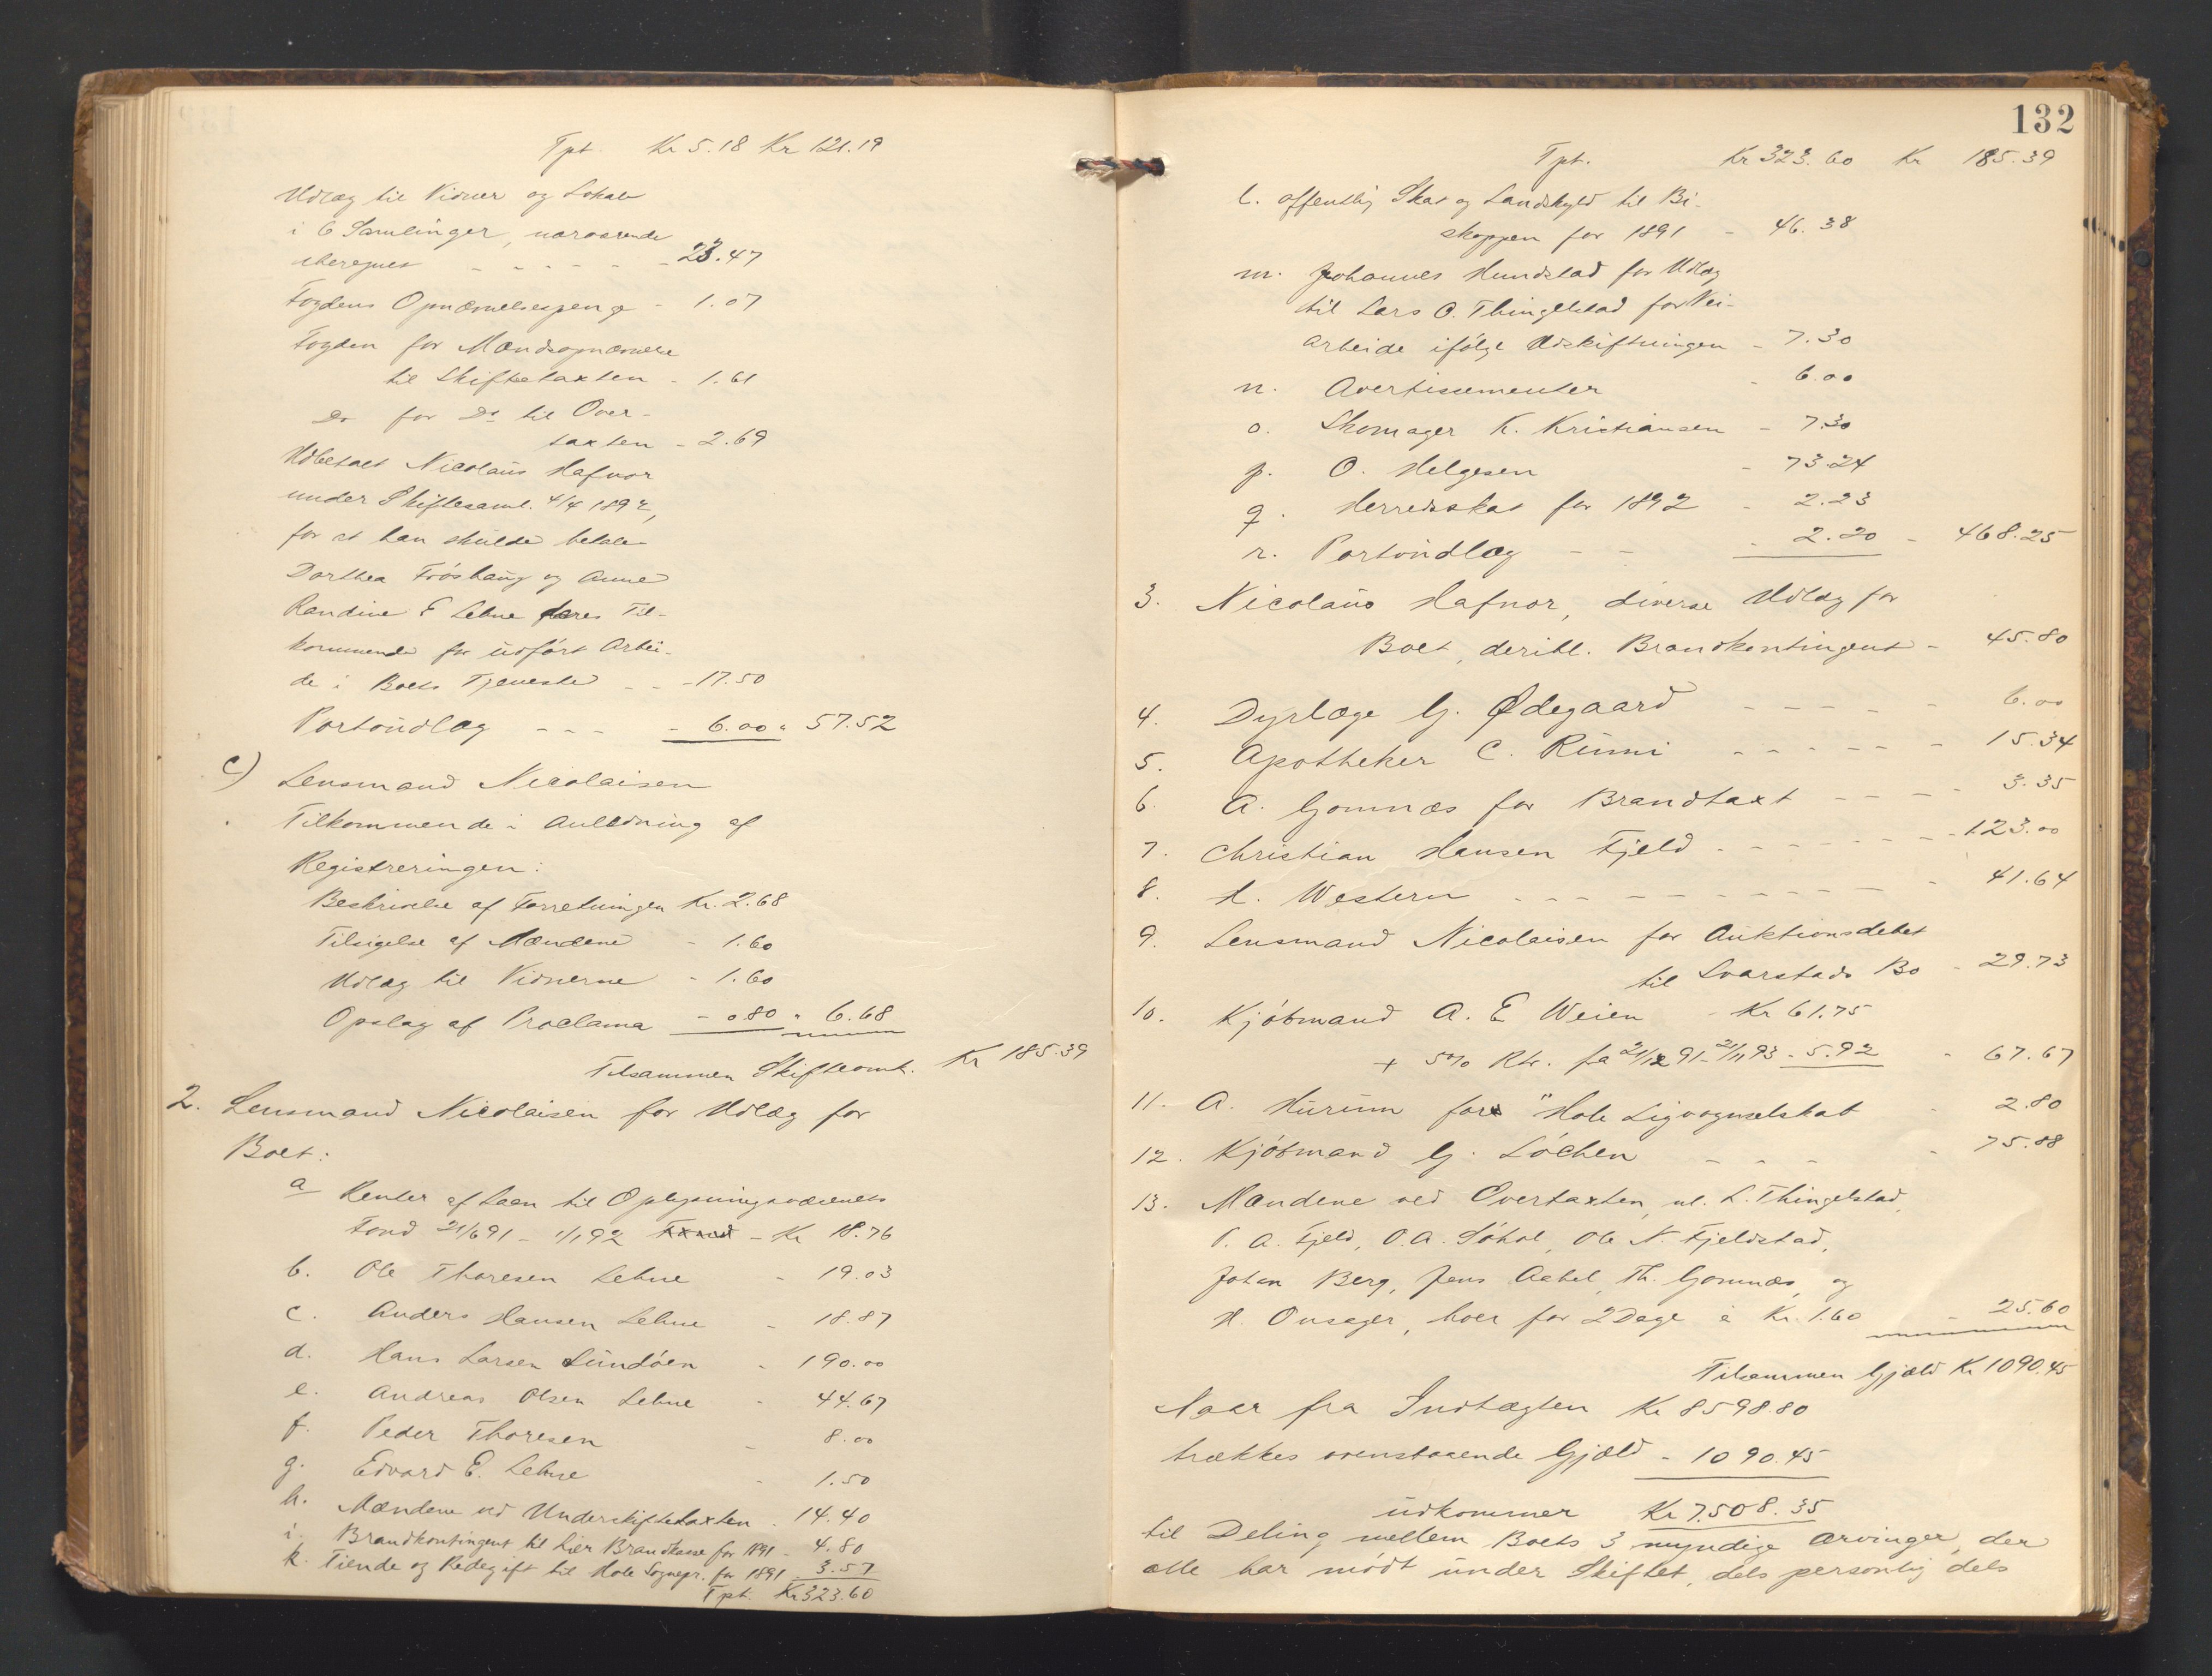 Tpt. Kr 5.18 Kr 121.19
Udlæg til Vidner og Lokale
i 6 Samlinger, nærværende
iberegnet - - - - - - 23.47
Fogdens Opnævnelsespenge - 1.07
Fogden for Mandsopnævnelse
til Skiftetaxten - 1.61
Do for Do til Over-
taxten - 2.69
Udbetalt Nicolaus Hafnor
under Skiftesaml. 4/4 1892,
for at han skulde betale
Dorthea Frøshaug og Anne
Randine E Lehne deres Til-
kommende for udført Arbei-
de i Boets Tjeneste - - - 17.50
Portoudlæg - - - - 6.00 " 57.52
c) Lensmand Nicolaisen
Tilkommende i Anledning af
Registreringen:
Beskrivelse af Forretningen Kr. 2.68
Tilsigelse af Mændene - 1.60
Udlæg til Vidnerne - 1.60
Opslag af Proclama - 0.80 " 6.68
Tilsammen Skifteomk. Kr 185.39
2. Lensmand Nicolaisen for Udlæg for
Boet:
a Renter af Laan til Oplysningsvæsenets
Fond 21/6 91 - 1/1 92 - Kr 18.76
b. Ole Thoresen Lehne - 19.03
c. Anders Hansen Lehne - 18.87
d. Hans Larsen Sundøen - 190.00
e. Andreas Olsen Lehne - 44.67
f. Peder Thoresen - 8.00
g. Edvard E. Lehne - 1.50
h. Mændene ved Underskiftetaxten - 14.40
i. Brandkontingent til Lier Brandkasse for 1891 - 4.80
k. Tiende og Redegift til Hole Sognepr. for 1891 - 3.57
Tpt. Kr 323.60
132
Tpt. Kr 323.60 Kr 185.39
l. offentlig Skat og Landskyld til Bi-
skoppen for 1891 - 46.38
m. Johannes Hundstad for Udlæg
til Lars O. Thingelstad for Vei-
arbeide ifølge Udskiftningen - 7.30
n. Avertissementer - 6.00
o. Skomager K. Kristiansen - 7.30
p. O. Helgesen - 73.24
q. Herredsskat for 1892 - 2.23
r. Portoudlæg - - - 2.20 - 468.25
3. Nicolaus Hafnor, diverse Udlæg for
Boet, deribl. Brandkontingent - 45.80
4. Dyrlæge G. Ødegaard - - - - - - 6.00
5. Apotheker C. Rimmi - - - - - - 15.34
6. A. Gomnæs for Brandtaxt - - - - 3.35
7. Christian Hansen Fjeld - - - - - - - 123.00
8. Western - - - - - - - - - 41.64
9. Lensmand Nicolaisen for Auktionsdebet
til Svarstads Bo - 29.73
10. Kjøbmand A. E Weien - Kr 61.75
+ 5% Rtr. fra 21/12 91 - 21/11 93 - 5.92 " 67.67
11. A. Hurum for "Hole Ligvognselskab - 2.80
12. Kjøbmand G. Løchen - - - - 75.88
13. Mændene ved Overtaxten, nl. L. Thingelstad,
P. A. Fjeld, O. A. Søhol, Ole N. Fjeldstad,
Johan Berg, Jens Aabel, Th. Gomnæs, og
H. Onsager, hver for 2 Dage à Kr. 1.60 - 25.60
Tilsammen Gjæld Kr 1090.45
Naar fra Indtægten Kr 8598.80
trækkes ovenstaaende Gjæld - 1090.45
udkommer Kr 7.508.35
til Deling mellem Boets 3 myndige Arvinger, der
alle har mødt under Skiftet, dels personlig dels